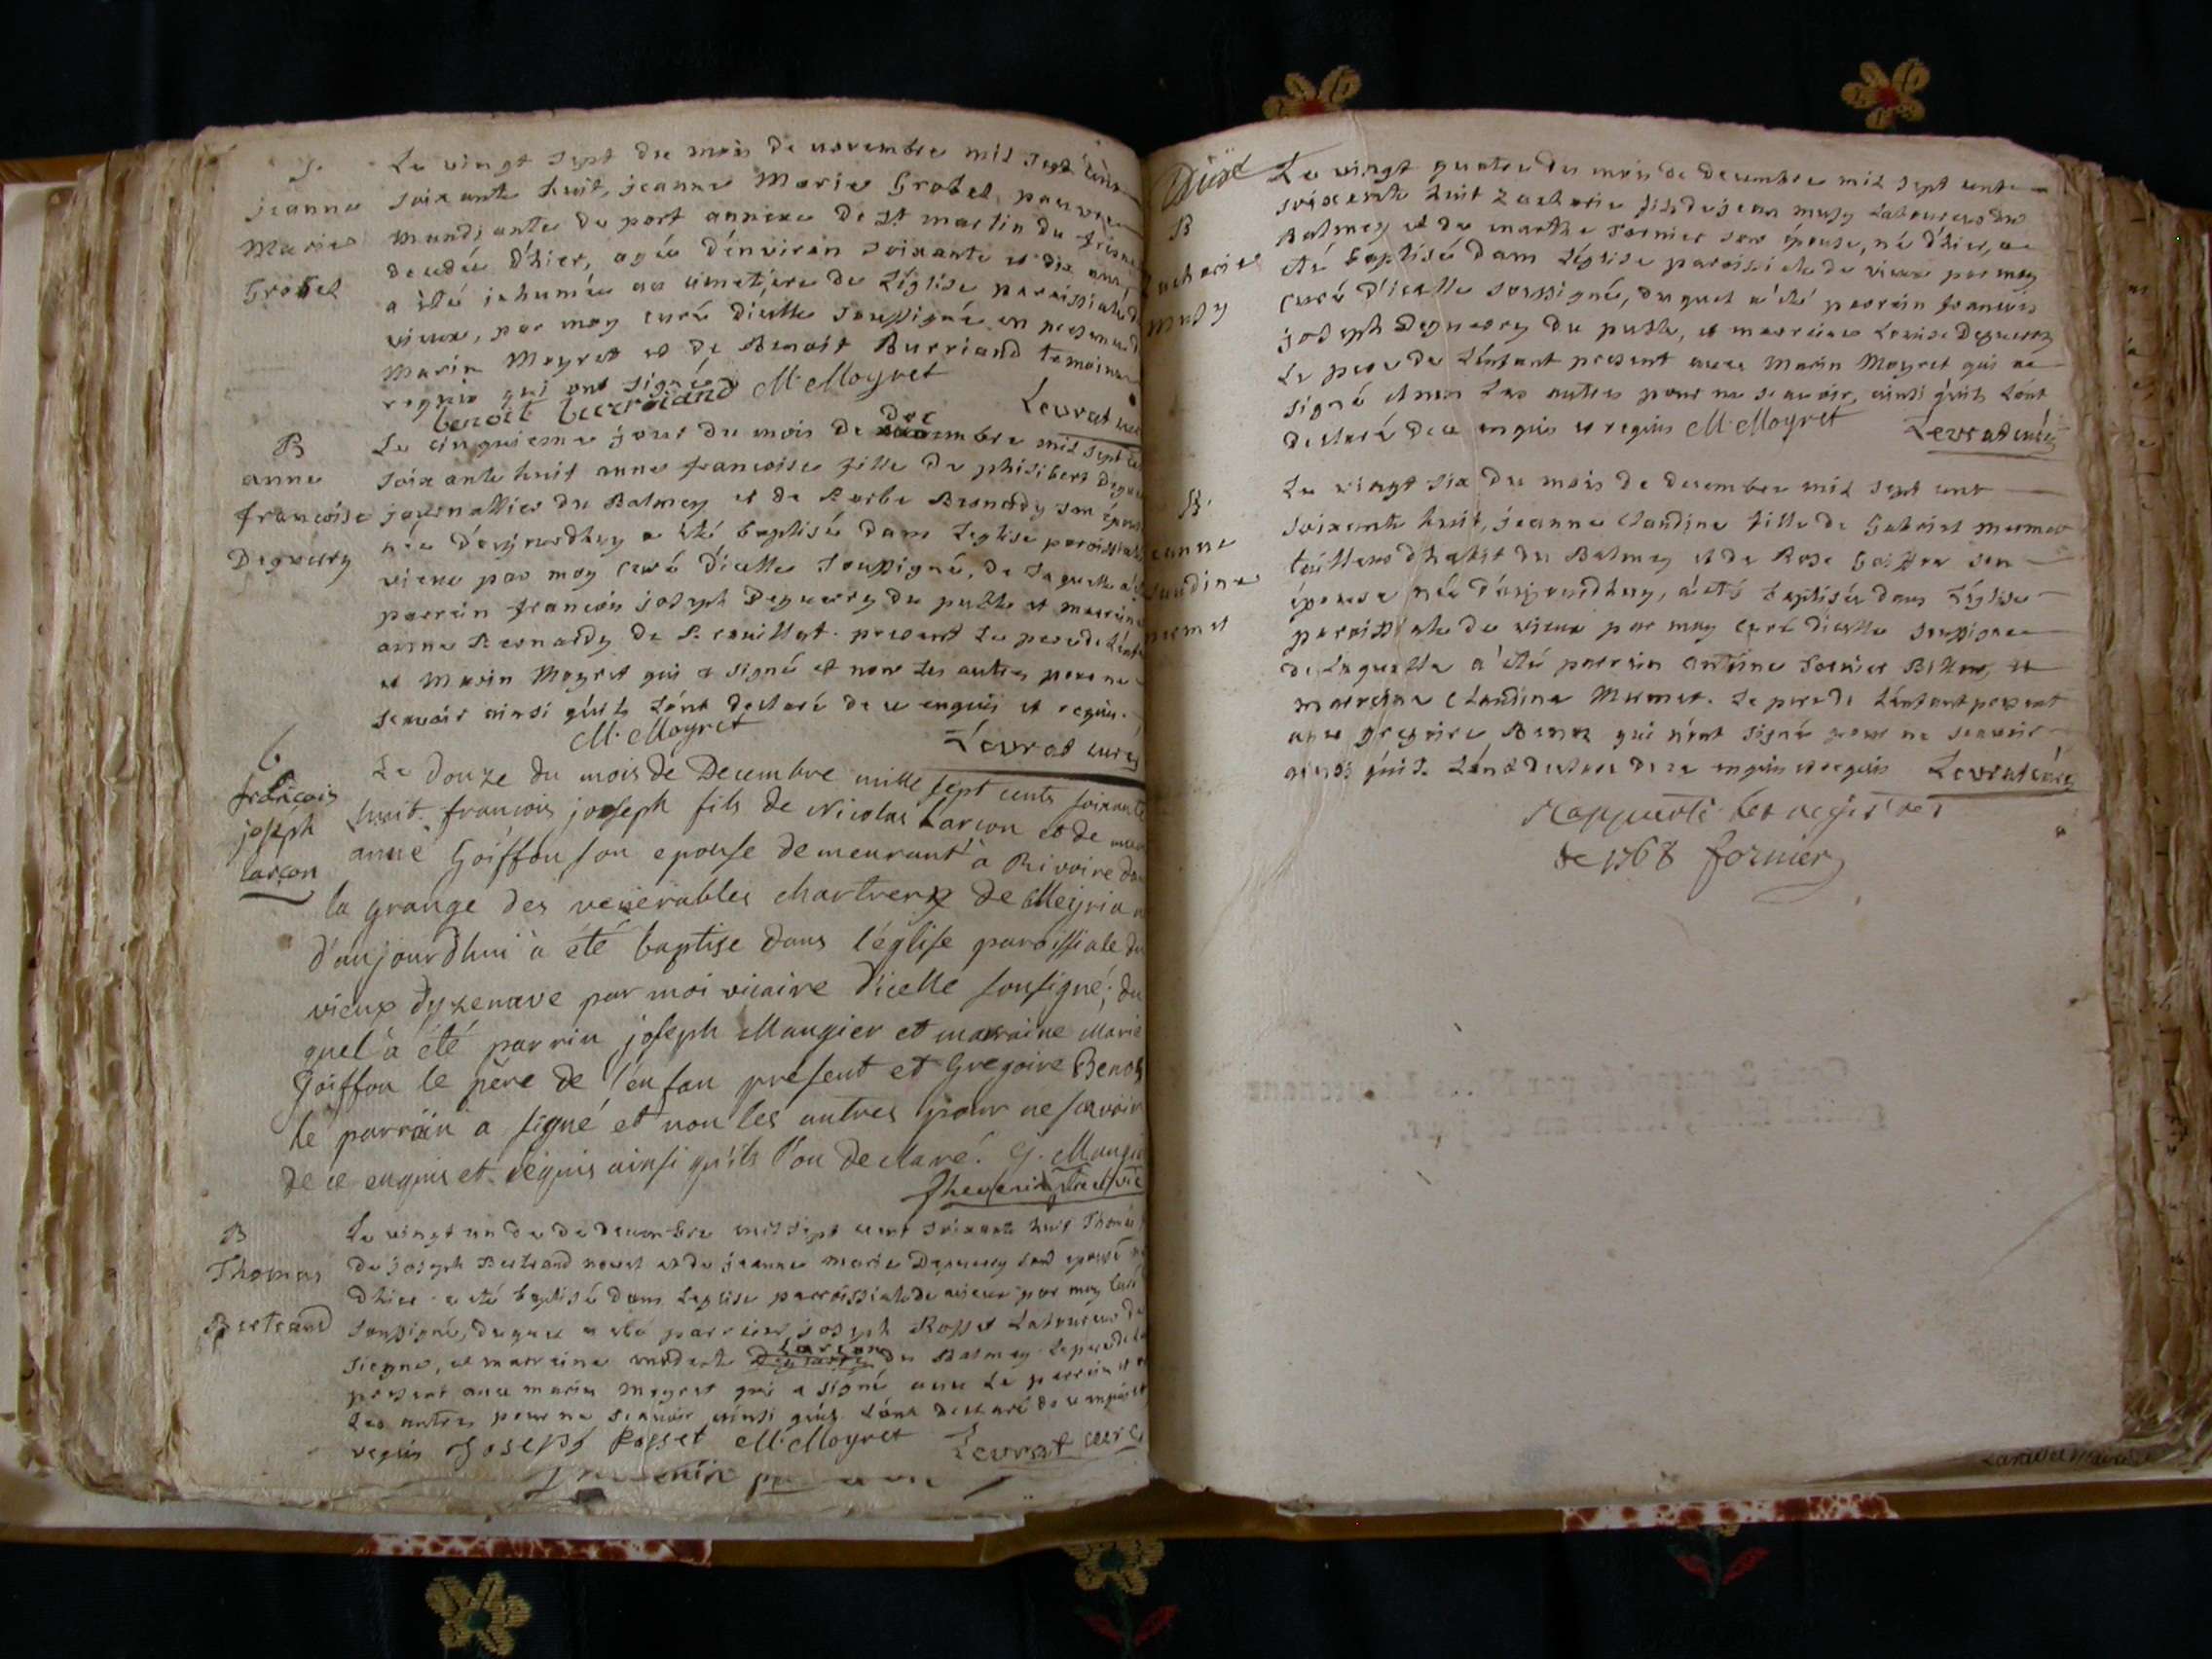 S.
jeanne
Marie
Grobel
Le vingt sept du mois de novembre mil sept cent
soixante huit, jeanne Marie Grobel, pauvre
mandiante du port annexe de St martin du fresne
decedée d'hier, agée d'environ soixante et dix ans,
a été inhumée au cimetiere de L'église paroissiale de
vieux, par moy curé d'icelle soussigné en presence de
Marin Moyret et de Benoit Burriand temoins
requis qui ont signés
benoit burriand M. Moyret Levrat curé
B
anne
francoise
Deguerry
Le cinquieme jour du mois de decembre mil sept cent
soixante huit anne francoise fille de philibert Deguerry
journallier du Balmey et de Bernardy son épouse
née d'aujourdhuy a été baptisée dans Leglise paroissiale
vieux par moy curé d'icelle soussigné, de Laquelle a été
parrain francois joseph Deguerry du et marraine
anne Bernardy de present Le pere de L'enfant
et Marin Moyret qui a signé et non Les autres pour ne
scavoir ainsi qu'ils L'ont declaré de ce enquis et requis.
M. Moyret Levrat curé
francois
joseph
larcon
Le douze du mois de Decembre mille sept cents soixante
huit francois joseph fils de Nicolas Larcon et de
anne Goiffon son epouse demeurant à Rivoire dans
la grange des venerables chartreux de Meyriat
d'aujourdhui à été baptise dans l'église paroissiale du
vieux dyzenave par moi vicaire d'icelle sousigné; du
quel à été parrin joseph Maugier et maraine Marie
Goiffon le père de l'enfan present et Gregoire Benoz
le parrain a signé et non les autres pour ne scavoir
de ce enquis et requis ainsi qu'ils l'on declaré. J. Maugie
B
Thomas
Bertrand
Le vingt un de decembre mil sept cent soixante huit Thomas
de joseph Bertrand et de jeanne marie Deguerry son epouse
d'hier a été baptisé dans Leglise parroissiale de vieux par moy curé
soussigné, duquel a été parrain joseph Rosset Laboureur de
et marraine Larcon du Balmey Le pere de
present avec marin Moyret qui a signé avec Le parrain et
Les autres pour ne scavoir ainsi quis L'ont declaré de ce enquis et
requis Joseph Rosset M. Moyret Levrat curé
B
Zacharie
Musy
Le vingt quatre du mois de decembre mil sept cent
soixante huit Zacharie fils de jean musy Laboureur du
Balmey et de marthe fornier son épouse, né d'hier, a
été baptisé dans L'église paroissiale de vieux par moy
curé d'icelle soussigné, duquel a été parrain francois
joseph Deguerry du et marraine Louise Deguerry
Le pere de L'enfant present avec Marin Moyret qui a
signé et non Les autres pour ne scavoir, ainsi qu'ils L'ont
declaré de ce enquis et requis M. Moyret Levrat curé
B.
Le vingt six du mois de decembre mil sept cent
soixante huit, jeanne claudine fille de Gabriel mermet
tailleur d'habit du Balmey et de Rose Goiffon son
épouse née d'aujourdhuy, a été baptisée dans L'église
paroissiale de vieux par moy curé d'icelle soussigné
de Laquelle a été parrain antoine fornier et
marraine Claudine Mermet. Le pere de L'enfant present
avec gregoire Benoz qui n'ont signé pour ne scavoir
ainsi qu'ils L'ont declaré de ce enquis et requis Levrat curé
Rapporté les registres
de 1768 fornier